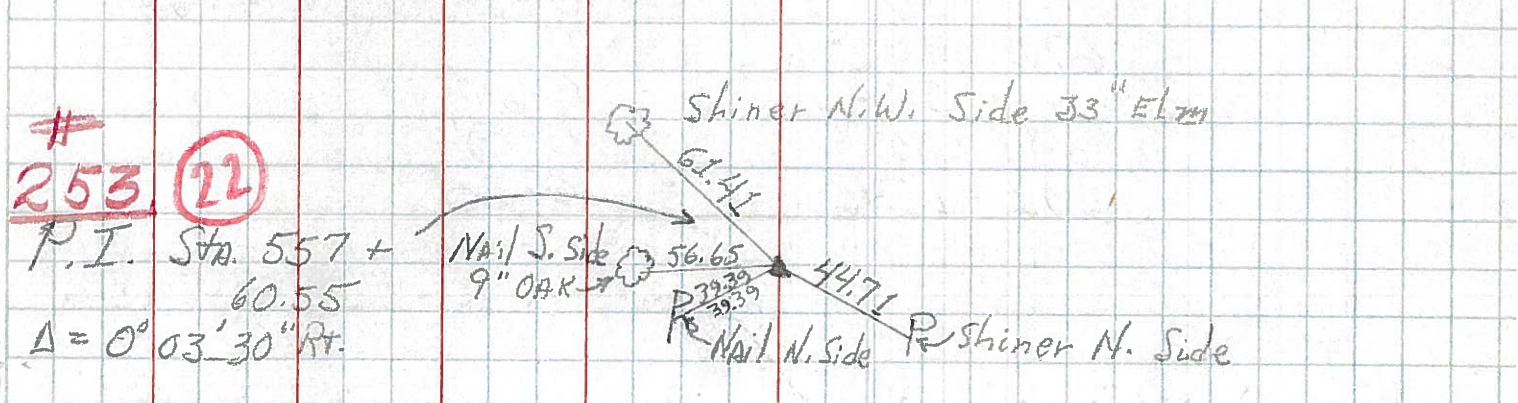 #
253 22
P.I. Sta. 557 +
60.55
Δ = 0° 03' 30" Rt.
Shiner N.W. Side 33" Elm
61.41
Nail S. Side
9" OAK
56.65
39.39
39.39
44.71
Nail N. Side
Shiner N. Side